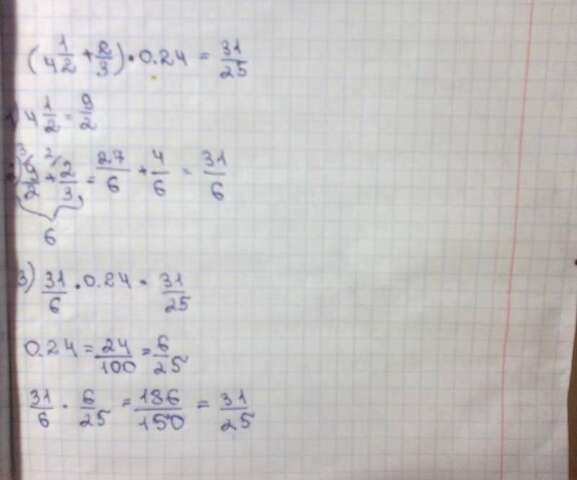 (4 1/2 + 2/3) · 0.24 = 31/25
1) 4 1/2 = 9/2
2) 9/2 + 2/3 = 27/6 + 4/6 = 31/6
3 2
6
3) 31/6 · 0.24 = 31/25
0.24 = 24/100 = 6/25
31/6 · 6/25 = 186/150 = 31/25